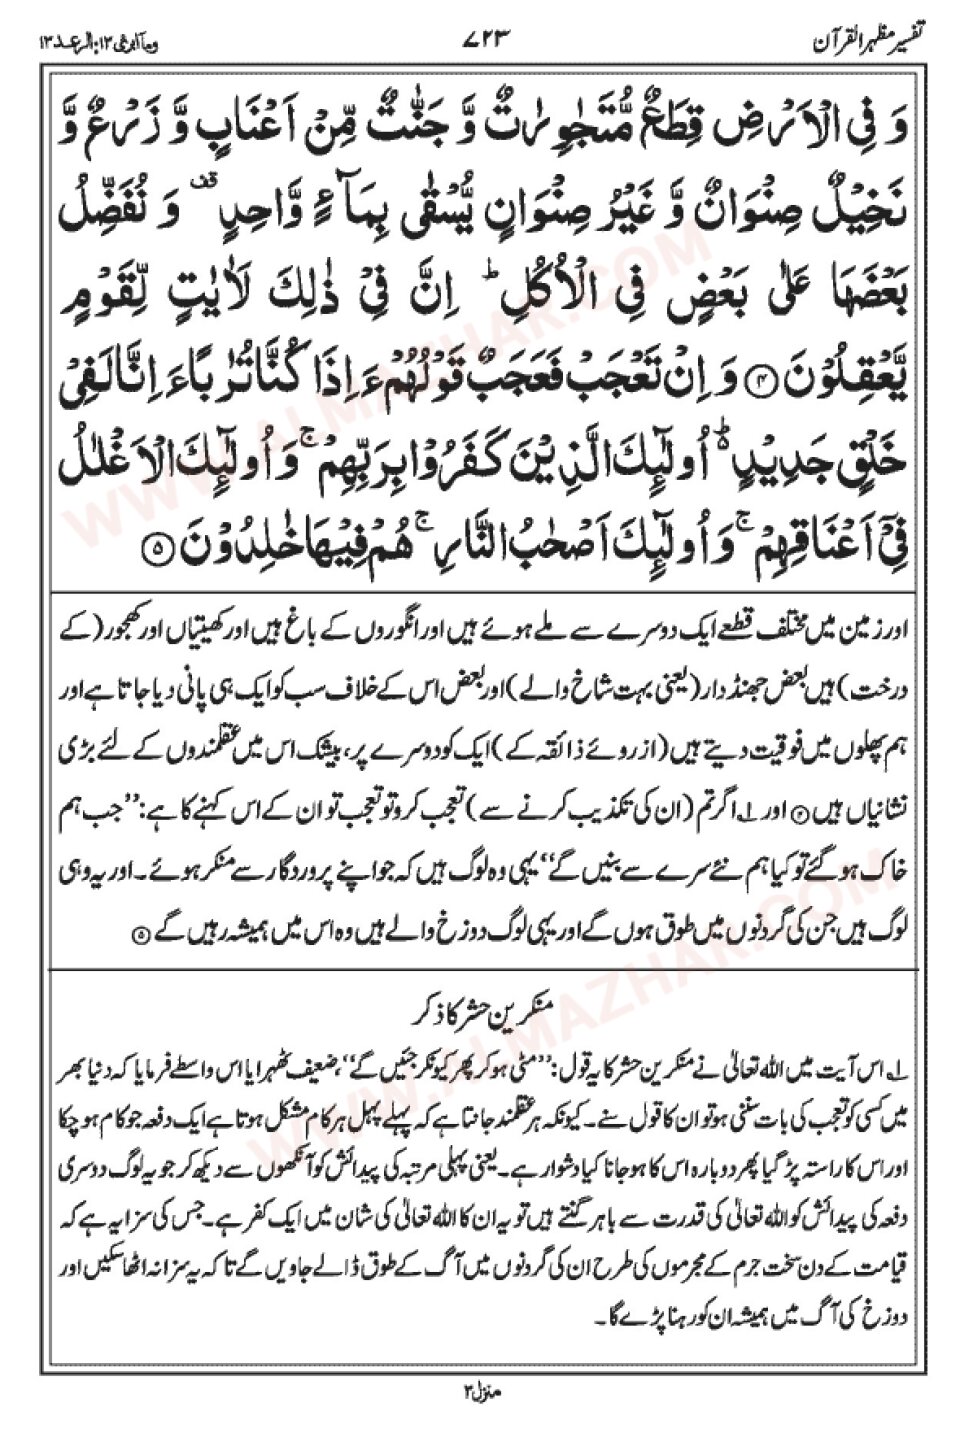 تفسیر مظہر القرآن ۷۲۳ وما ابرئ ۱۳: الرعد ۱۳
وَ فِی الْاَرْضِ قِطَعٌ مُّتَجٰوِرٰتٌ وَّ جَنّٰتٌ مِّنْ اَعْنَابٍ وَّ زَرْعٌ وَّ
نَخِیْلٌ صِنْوَانٌ وَّ غَیْرُ صِنْوَانٍ یُّسْقٰی بِمَآءٍ وَّاحِدٍ قف وَ نُفَضِّلُ
بَعْضَهَا عَلٰی بَعْضٍ فِی الْاُكُلِ ؕ اِنَّ فِیْ ذٰلِكَ لَاٰیٰتٍ لِّقَوْمٍ
یَّعْقِلُوْنَ ﴿۴﴾ وَ اِنْ تَعْجَبْ فَعَجَبٌ قَوْلُهُمْ ءَاِذَا كُنَّا تُرٰبًا ءَاِنَّا لَفِیْ
خَلْقٍ جَدِیْدٍ ۬ؕ اُولٰٓئِكَ الَّذِیْنَ كَفَرُوْا بِرَبِّهِمْ ۚ وَ اُولٰٓئِكَ الْاَغْلٰلُ
فِیْۤ اَعْنَاقِهِمْ ۚ وَ اُولٰٓئِكَ اَصْحٰبُ النَّارِ ۚ هُمْ فِیْهَا خٰلِدُوْنَ ﴿۵﴾
اور زمین میں مختلف قطعے ایک دوسرے سے ملے ہوئے ہیں اور انگوروں کے باغ ہیں اور کھیتیاں اور کھجور (کے
درخت) ہیں بعض جھنڈدار (یعنی بہت شاخ والے) اور بعض اس کے خلاف سب کو ایک ہی پانی دیا جاتا ہے اور
ہم پھلوں میں فوقیت دیتے ہیں (از روئے ذائقہ کے) ایک کو دوسرے پر، بیشک اس میں عقلمندوں کے لئے بڑی
نشانیاں ہیں ﴿۴﴾ اور ۱؎ اگر تم (ان کی تکذیب کرنے سے) تعجب کرو تو تعجب تو ان کے اس کہنے کا ہے: ’’جب ہم
خاک ہو گئے تو کیا ہم نئے سرے سے بنیں گے‘‘ یہی وہ لوگ ہیں کہ جو اپنے پروردگار سے منکر ہوئے۔ اور یہ وہی
لوگ ہیں جن کی گردنوں میں طوق ہوں گے اور یہی لوگ دوزخ والے ہیں وہ اس میں ہمیشہ رہیں گے ﴿۵﴾
منکرین حشر کا ذکر
۱؎ اس آیت میں اللہ تعالیٰ نے منکرین حشر کا یہ قول: ’’مٹی ہو کر پھر کیونکر جئیں گے‘‘، ضعیف ٹھہرایا اس واسطے فرمایا کہ دنیا بھر
میں کسی کو تعجب کی بات سننی ہو تو ان کا قول سنے۔ کیونکہ ہر عقلمند جانتا ہے کہ پہلے پہل ہر کام مشکل ہوتا ہے ایک دفعہ جو کام ہو چکا
اور اس کا راستہ پڑ گیا پھر دوبارہ اس کا ہو جانا کیا دشوار ہے۔ یعنی پہلی مرتبہ کی پیدائش کو آنکھوں سے دیکھ کر جو یہ لوگ دوسری
دفعہ کی پیدائش کو اللہ تعالیٰ کی قدرت سے باہر گنتے ہیں تو یہ ان کا اللہ تعالیٰ کی شان میں ایک کفر ہے۔ جس کی سزا یہ ہے کہ
قیامت کے دن سخت جرم کے مجرموں کی طرح ان کی گردنوں میں آگ کے طوق ڈالے جاویں گے تاکہ یہ سر نہ اٹھا سکیں اور
دوزخ کی آگ میں ہمیشہ ان کو رہنا پڑے گا۔
منزل ۳
WWW.ALMAZHAR.COM
WWW.ALMAZHAR.COM